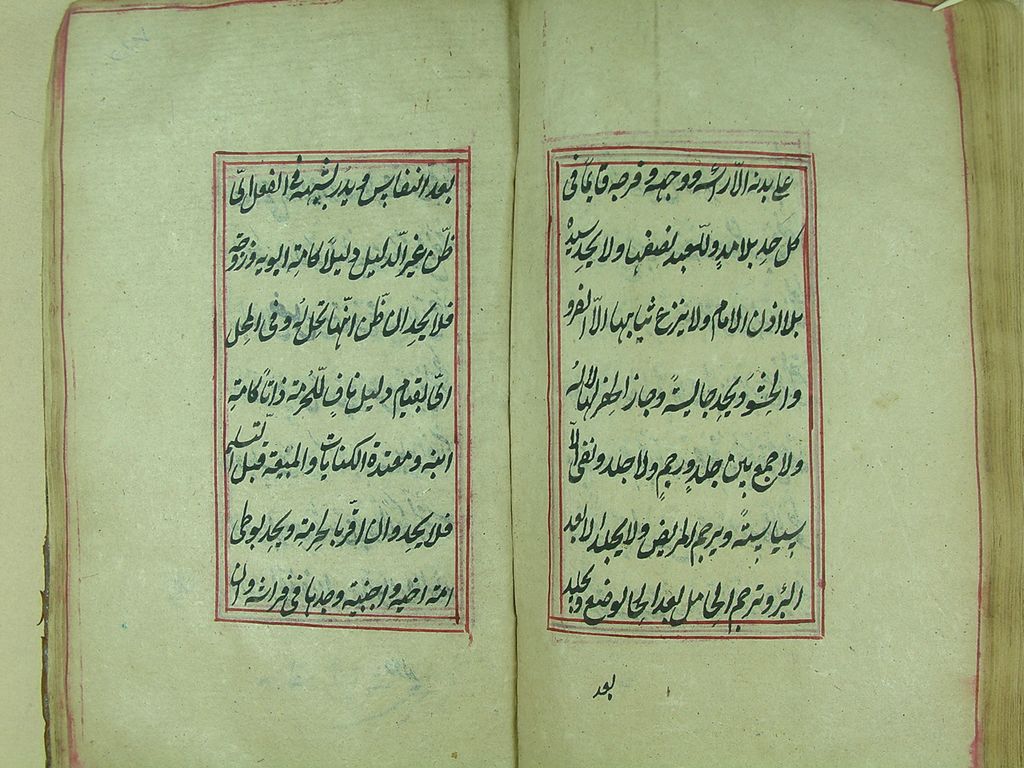 على بدنه الا راسه ووجهه وفرجه قايما فى
كل حد بلا مد وللعبد نصفها ولا يحد سيده
بلا اذن الامام ولا ينزع ثيابها الا الفرو
والحشو ويحد جالسة وجاز الحفر لها لا له
ولا جمع بين جلد ورجم ولا جلد ونفى الا
سياسة ويرجم المريض ولا يجلد الا بعد
البرؤ وترجم الحامل بعد الوضع وتجلد
بعد
بعد النفاس ويدرأ بشبهة فى الفعل اى
ظن غير الدليل دليلا كامة ابويه وزوجته
فلا يحد ان ظن انها تحل له وفى المحل
اى بقيام دليل ناف للحرمة ذاتا كامة
ابنه ومعتدة الكنايات والمبيعة قبل التسليم
فلا يحد وان اقر بالحرمة ويحد بوطى
امة اخيه واجنبية وجدها فى فراشه وان